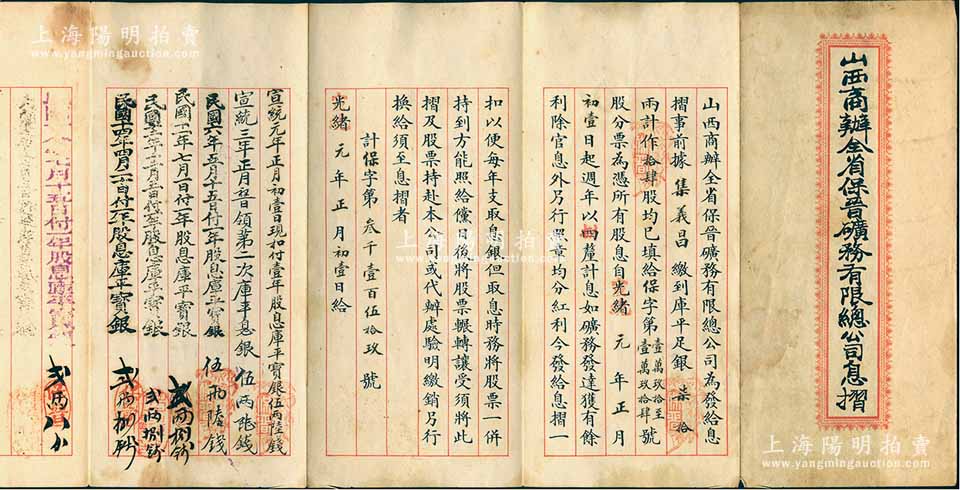 山西商辦全省保晉礦務有限總公司息摺
山西商辦全省保晉礦務有限總公司為發給息
摺事前據 集義昌 繳到庫平足銀 柒拾
兩計作拾肆股均已填給保字第壹萬玖拾至壹萬玖拾肆號
股分票為憑所有股息自光緒 元年正月
初壹日起週年以四釐計息如礦務發達獲有餘
利除官息外另行照章均分紅利今發給息摺一
扣以便每年支取息銀但取息時務將股票一併
持到方能照給儻日後將股票輾轉讓受須將此
摺及股票持赴本公司或代辦處驗明繳銷另行
換給須至息摺者
計保字第 叁千壹百伍拾玖 號
光緒 元年正月初壹日給
宣統元年正月初壹日現扣付壹年股息庫平寶銀伍兩陸錢
宣統三年正月 日領第二次庫平息銀 伍兩陸錢
民國六年五月十五日付一年股息庫平寶銀 伍兩陸錢
民國十一年七月一日付一年股息庫平寶銀 貳兩捌錢
民國 年 月 日付 年股息庫平寶銀 貳兩捌錢
民國十四年四月 日付 股息庫平寶銀 貳兩捌錢
月十五日付一年股息庫平寶 貳兩八
上海陽明拍賣
www.yangmingauction.com
上海陽明拍賣
www.yangmingauction.com
上海陽明拍賣
www.yangmingauction.com